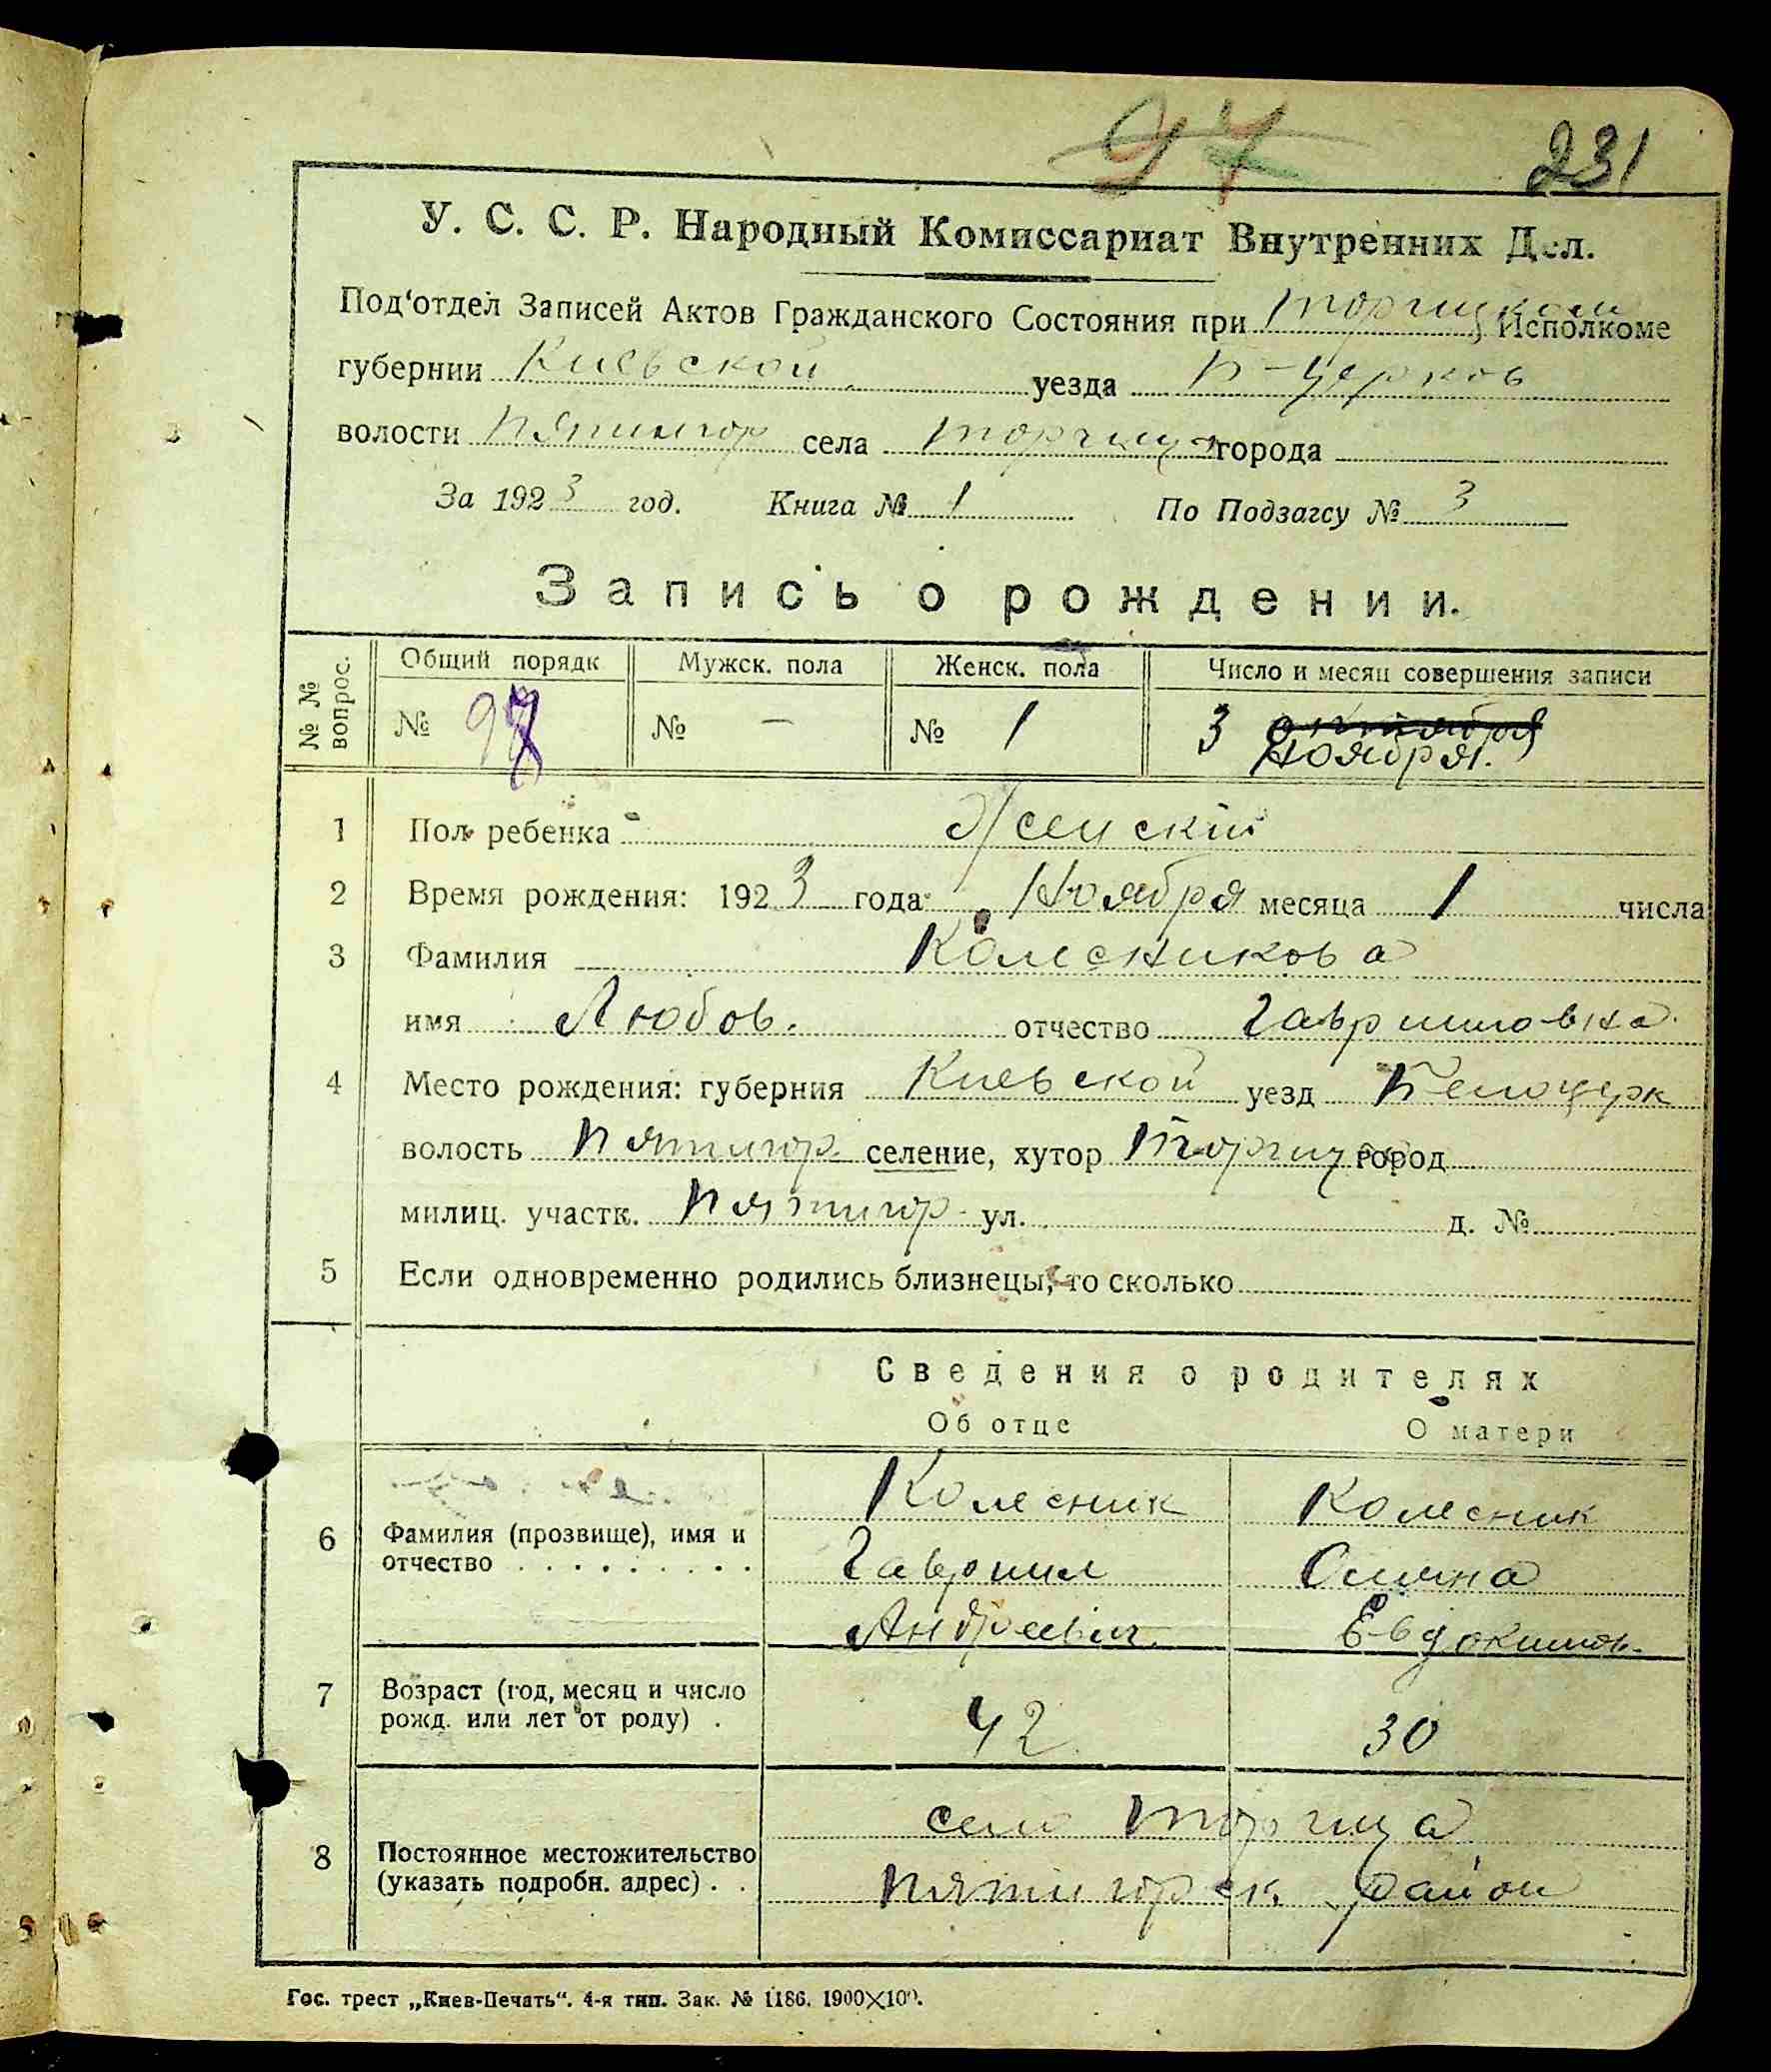 97 231
У. С. С. Р. Народный Комиссариат Внутренних Дел.
Под'отдел Записей Актов Гражданского Состояния при Торчицком Исполкоме
губернии Киевской уезда Б-Церков
волости Пятигор села Торчица города
За 1923 год. Книга № 1 По Подзагсу № 3
Запись о рождении.
№ № вопрос. Общий порядк Мужск. пола Женск. пола Число и месяц совершения записи
№ 97 № — № 1 3 октября
ноября.
1 Пол ребенка Женский
2 Время рождения: 1923 года Ноября месяца 1 числа
3 Фамилия Колесникова
имя Любов. отчество Гавриловна
4 Место рождения: губерния Киевской уезд Белоцерк
волость Пятигор. селение, хутор Торчица город
милиц. участк. Пятигор. ул. д. №
5 Если одновременно родились близнецы, то сколько
Сведения о родителях
Об отце О матери
Колесник Колесник
6 Фамилия (прозвище), имя и
отчество . . . . . . . . . Гавриил
Андреевич Евдокимов.
7 Возраст (год, месяц и число
рожд. или лет от роду) . 42 30
село Торчица
8 Постоянное местожительство
(указать подробн. адрес) . . Пятигорск. район
Гос. трест „Киев-Печать“. 4-я тип. Зак. № 1186. 1900×100.